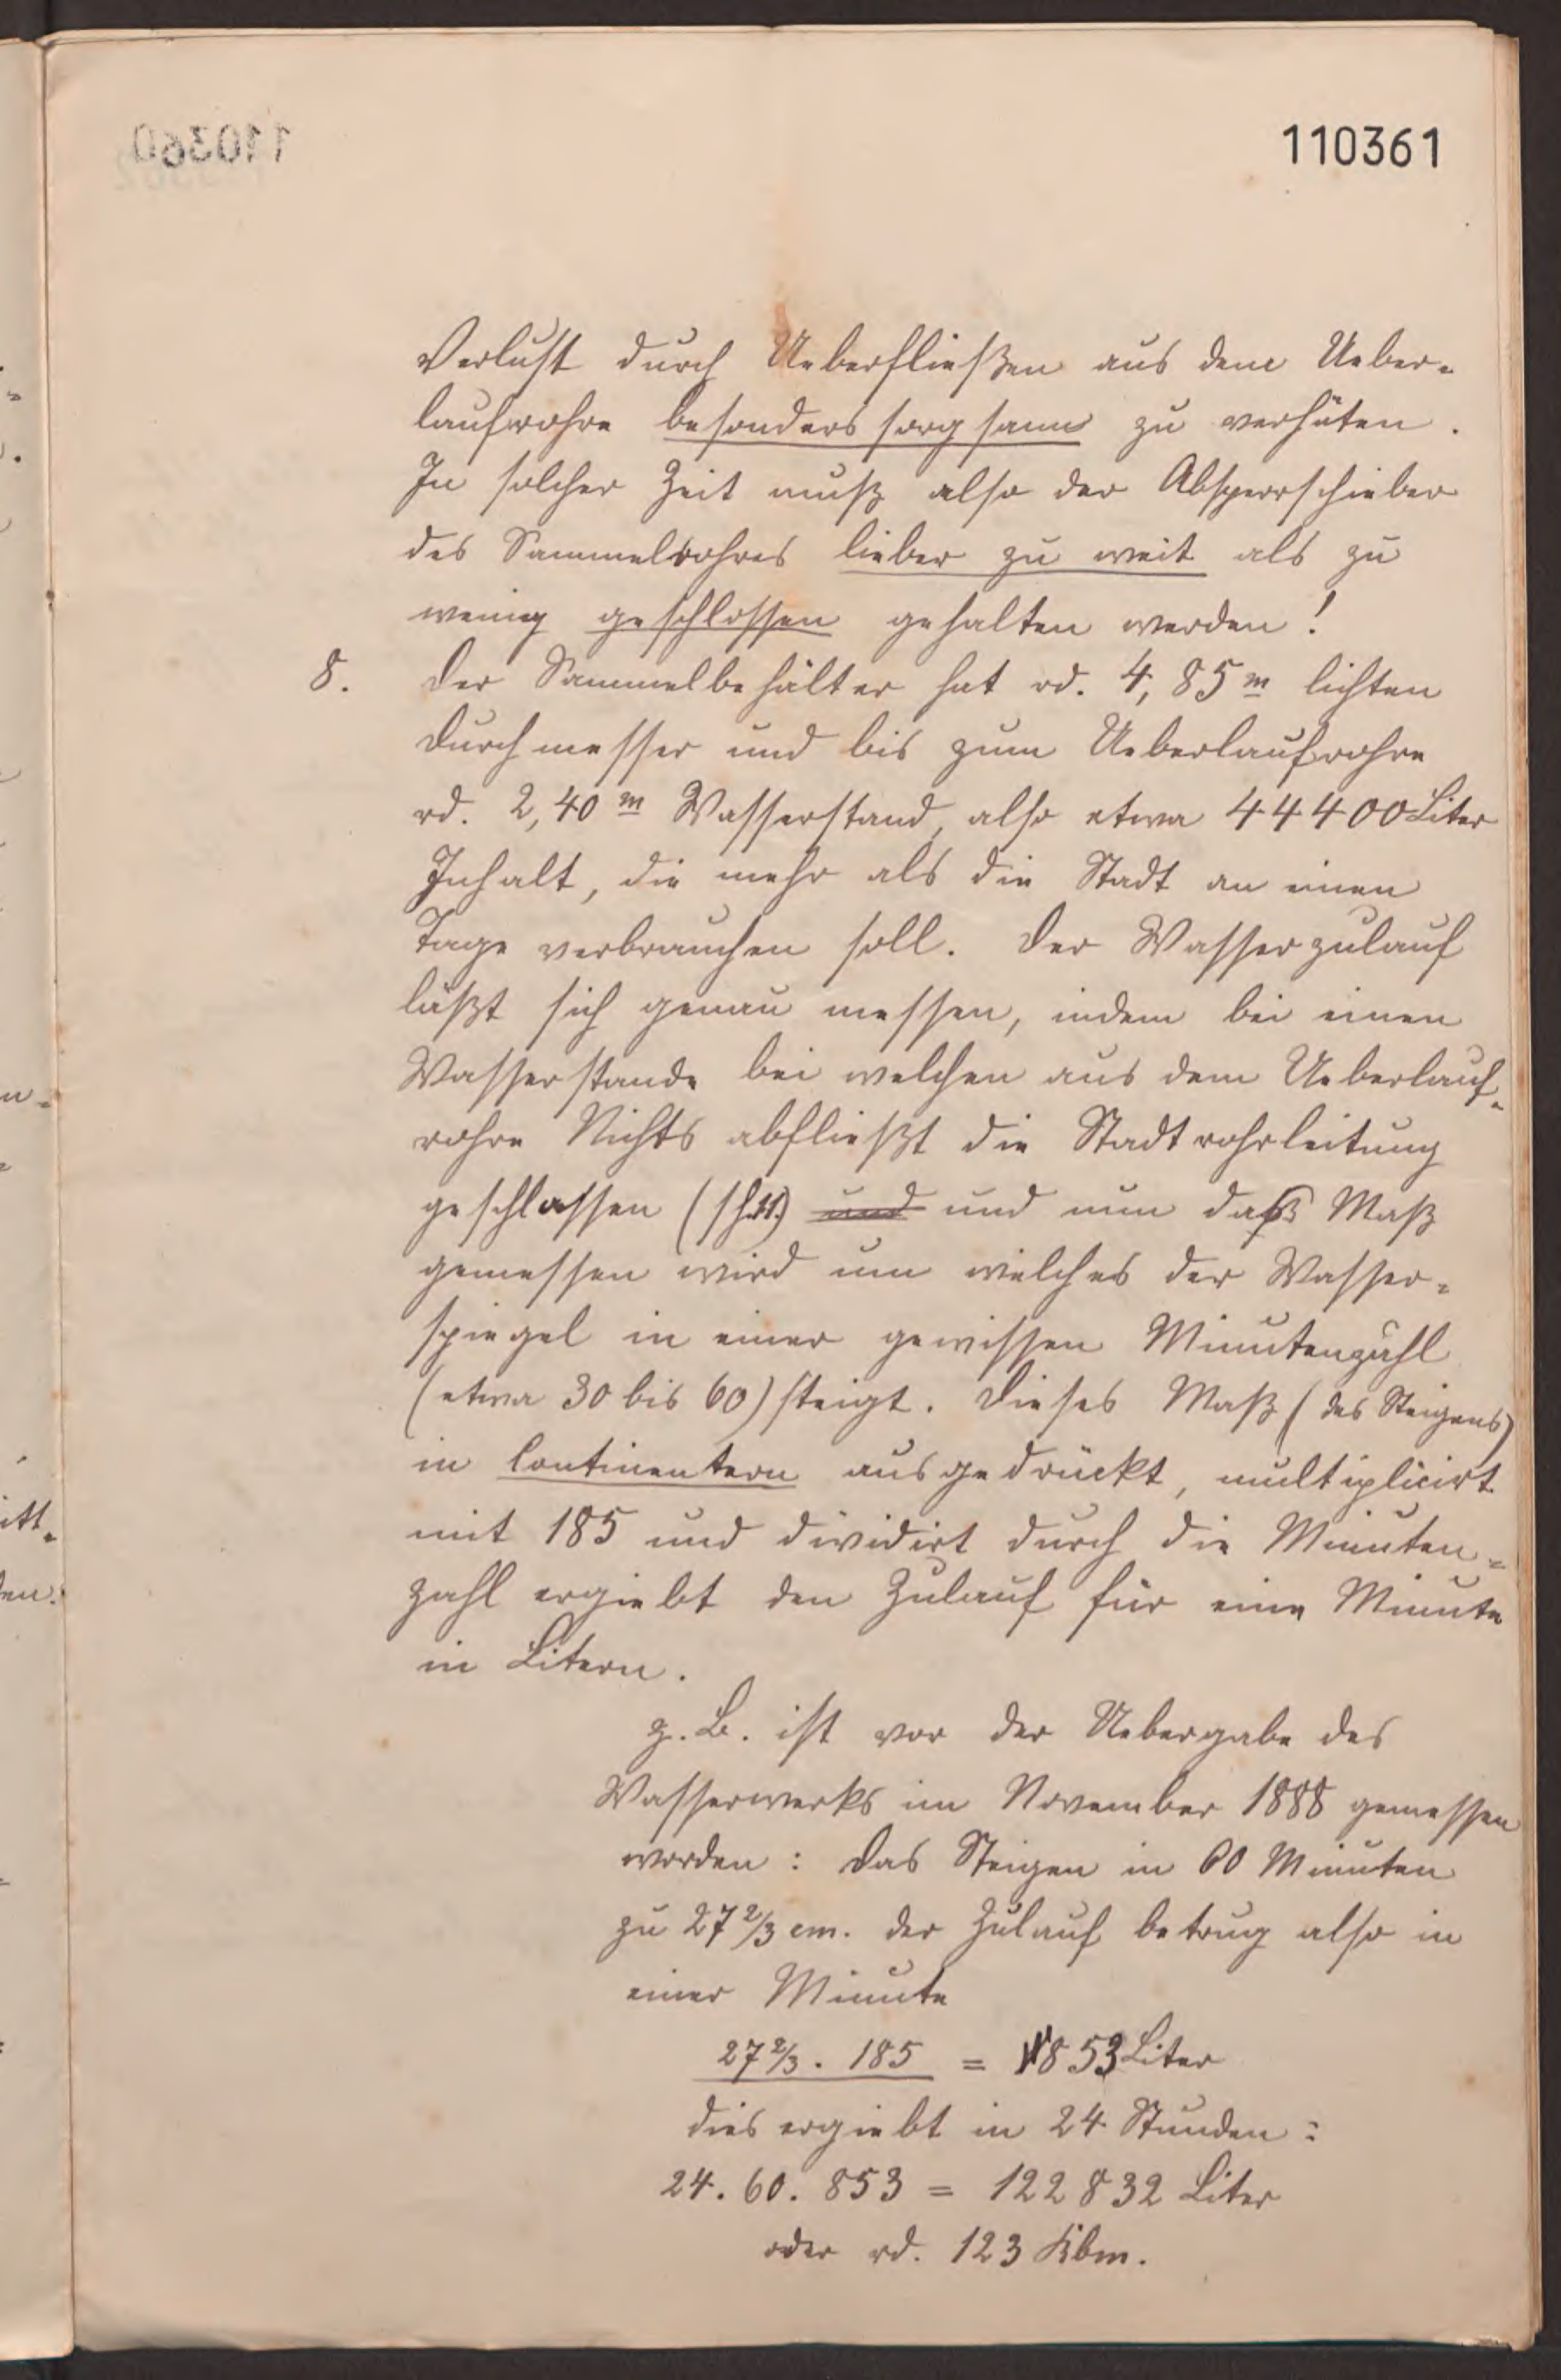 110361
Verlust durch Ueberfließen aus dem Ueber-
laufrohre besonders sorgsam zu verhüten.
In solcher Zeit muß also der Absperrschieber
des Sammelrohres lieber zu weit als zu
wenig geschlossen gehalten werden!
8. Der Sammelbehälter hat rd. 4,85 m lichten
Durchmesser und bis zum Ueberlaufrohre
rd. 2,40 m Wasserstand, also etwa 44400 Liter
Inhalt, die mehr als die Stadt an einen
Tage verbrauchen soll. Der Wasserzulauf
läßt sich genau messen, indem bei einen
Wasserstande bei welchen aus dem Ueberlauf-
rohre Nichts abfließt die Stadtrohrleitung
geschlossen (sh.11.) und und nun daß Maß
gemessen wird um welches der Wasser-
spiegel in einer gewissen Minutenzahl
(etwa 30 bis 60) steigt. Dieses Maß (des Steigens)
in Centimetern ausgedrückt, multiplicirt
mit 185 und dividirt durch die Minuten-
zahl ergiebt den Zulauf für eine Minute
in Litern.
z. B. ist vor der Uebergabe des
Wasserwerks im November 1888 gemessen
worden: das Steigen in 60 Minuten
zu 27 2/3 cm. der Zulauf betrug also in
einer Minute
27 2/3 . 185 = 853 Liter
dies ergiebt in 24 Stunden:
24. 60. 853 = 122832 Liter
oder rd. 123 Kbm.